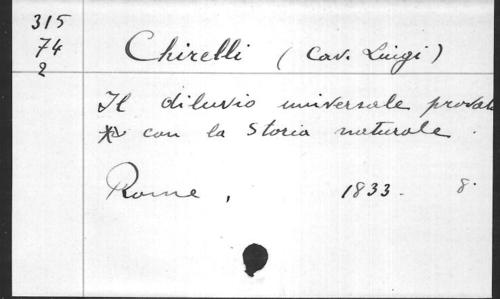 315
74
2
Chirelli (Cav. Luigi)
Il diluvio universale provato
con la Storia naturale.
Rome, 1833. 8.